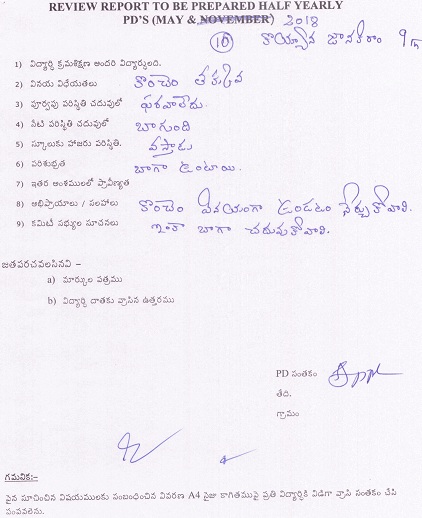 REVIEW REPORT TO BE PREPARED HALF YEARLY
PD'S (MAY & NOVEMBER) 2018
10 జానకిరాం 9
1) విద్యార్థి క్రమశిక్షణ అందరి విద్యార్థులది.
2) వినయ విధేయతలు కొంచెం తక్కువ
3) పూర్వపు పరిస్థితి చదువులో పరవాలేదు.
4) నేటి పరిస్థితి చదువులో బాగుంది
5) స్కూలుకు హాజరు పరిస్థితి. వస్తాడు
6) పరిశుభ్రత బాగా ఉంటాయి.
7) ఇతర అంశములలో ప్రావీణ్యత
8) అభిప్రాయాలు / సలహాలు కొంచెం వినయంగా ఉండటం నేర్చుకోవాలి.
9) కమిటీ సభ్యుల సూచనలు ఇంకా బాగా చదువుకోవాలి.
జతపరచవలసినవి –
a) మార్కుల పత్రము
b) విద్యార్థి దాతకు వ్రాసిన ఉత్తరము
PD సంతకం
తేది.
గ్రామం
గమనిక:-
పైన సూచించిన విషయములకు సంబంధించిన వివరణ A4 సైజు కాగితముపై ప్రతి విద్యార్థికి విడిగా వ్రాసి సంతకం చేసి
పంపవలెను.